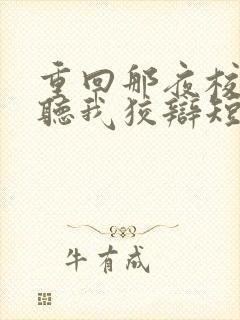 重回那夜校
听我狡辩短
牛有成